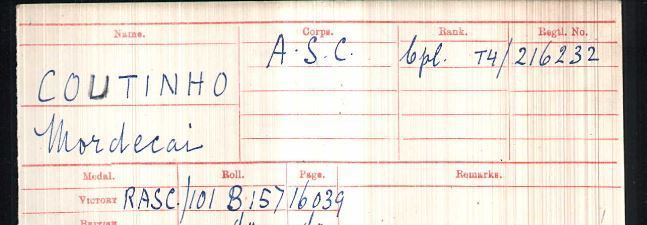 Name. Corps. Rank. Regtl. No.
COUTINHO A.S.C. Cpl. T4/216232
Mordecai
Medal. Roll. Page. Remarks.
VICTORY RASC/101 B157 16039
BRITISH do do